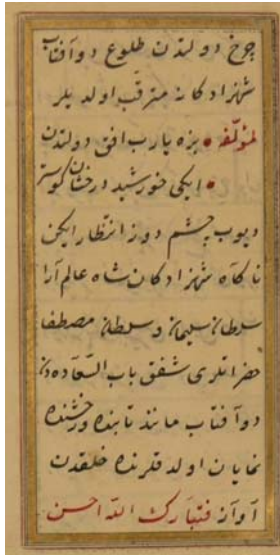 چرخ دولتدن طلوع دو آفتاب
شهزادکانه مترقب اولدیلر
لمؤلفه • بزه یارب افق دولتدن
• ایکی خورشید درخشان کوستر
دیوب چشم دوز انتظار ایکن
ناکاه شهزادکان شاه عالم آرا
سلطان سلیمان و سلطان مصطفا
حضراتلری شفق باب السعادهدن
دو آفتاب مانند تابنده و رخشنده
نمایان اولدقلرنده خلقدن
آواز فتبارک الله احسن